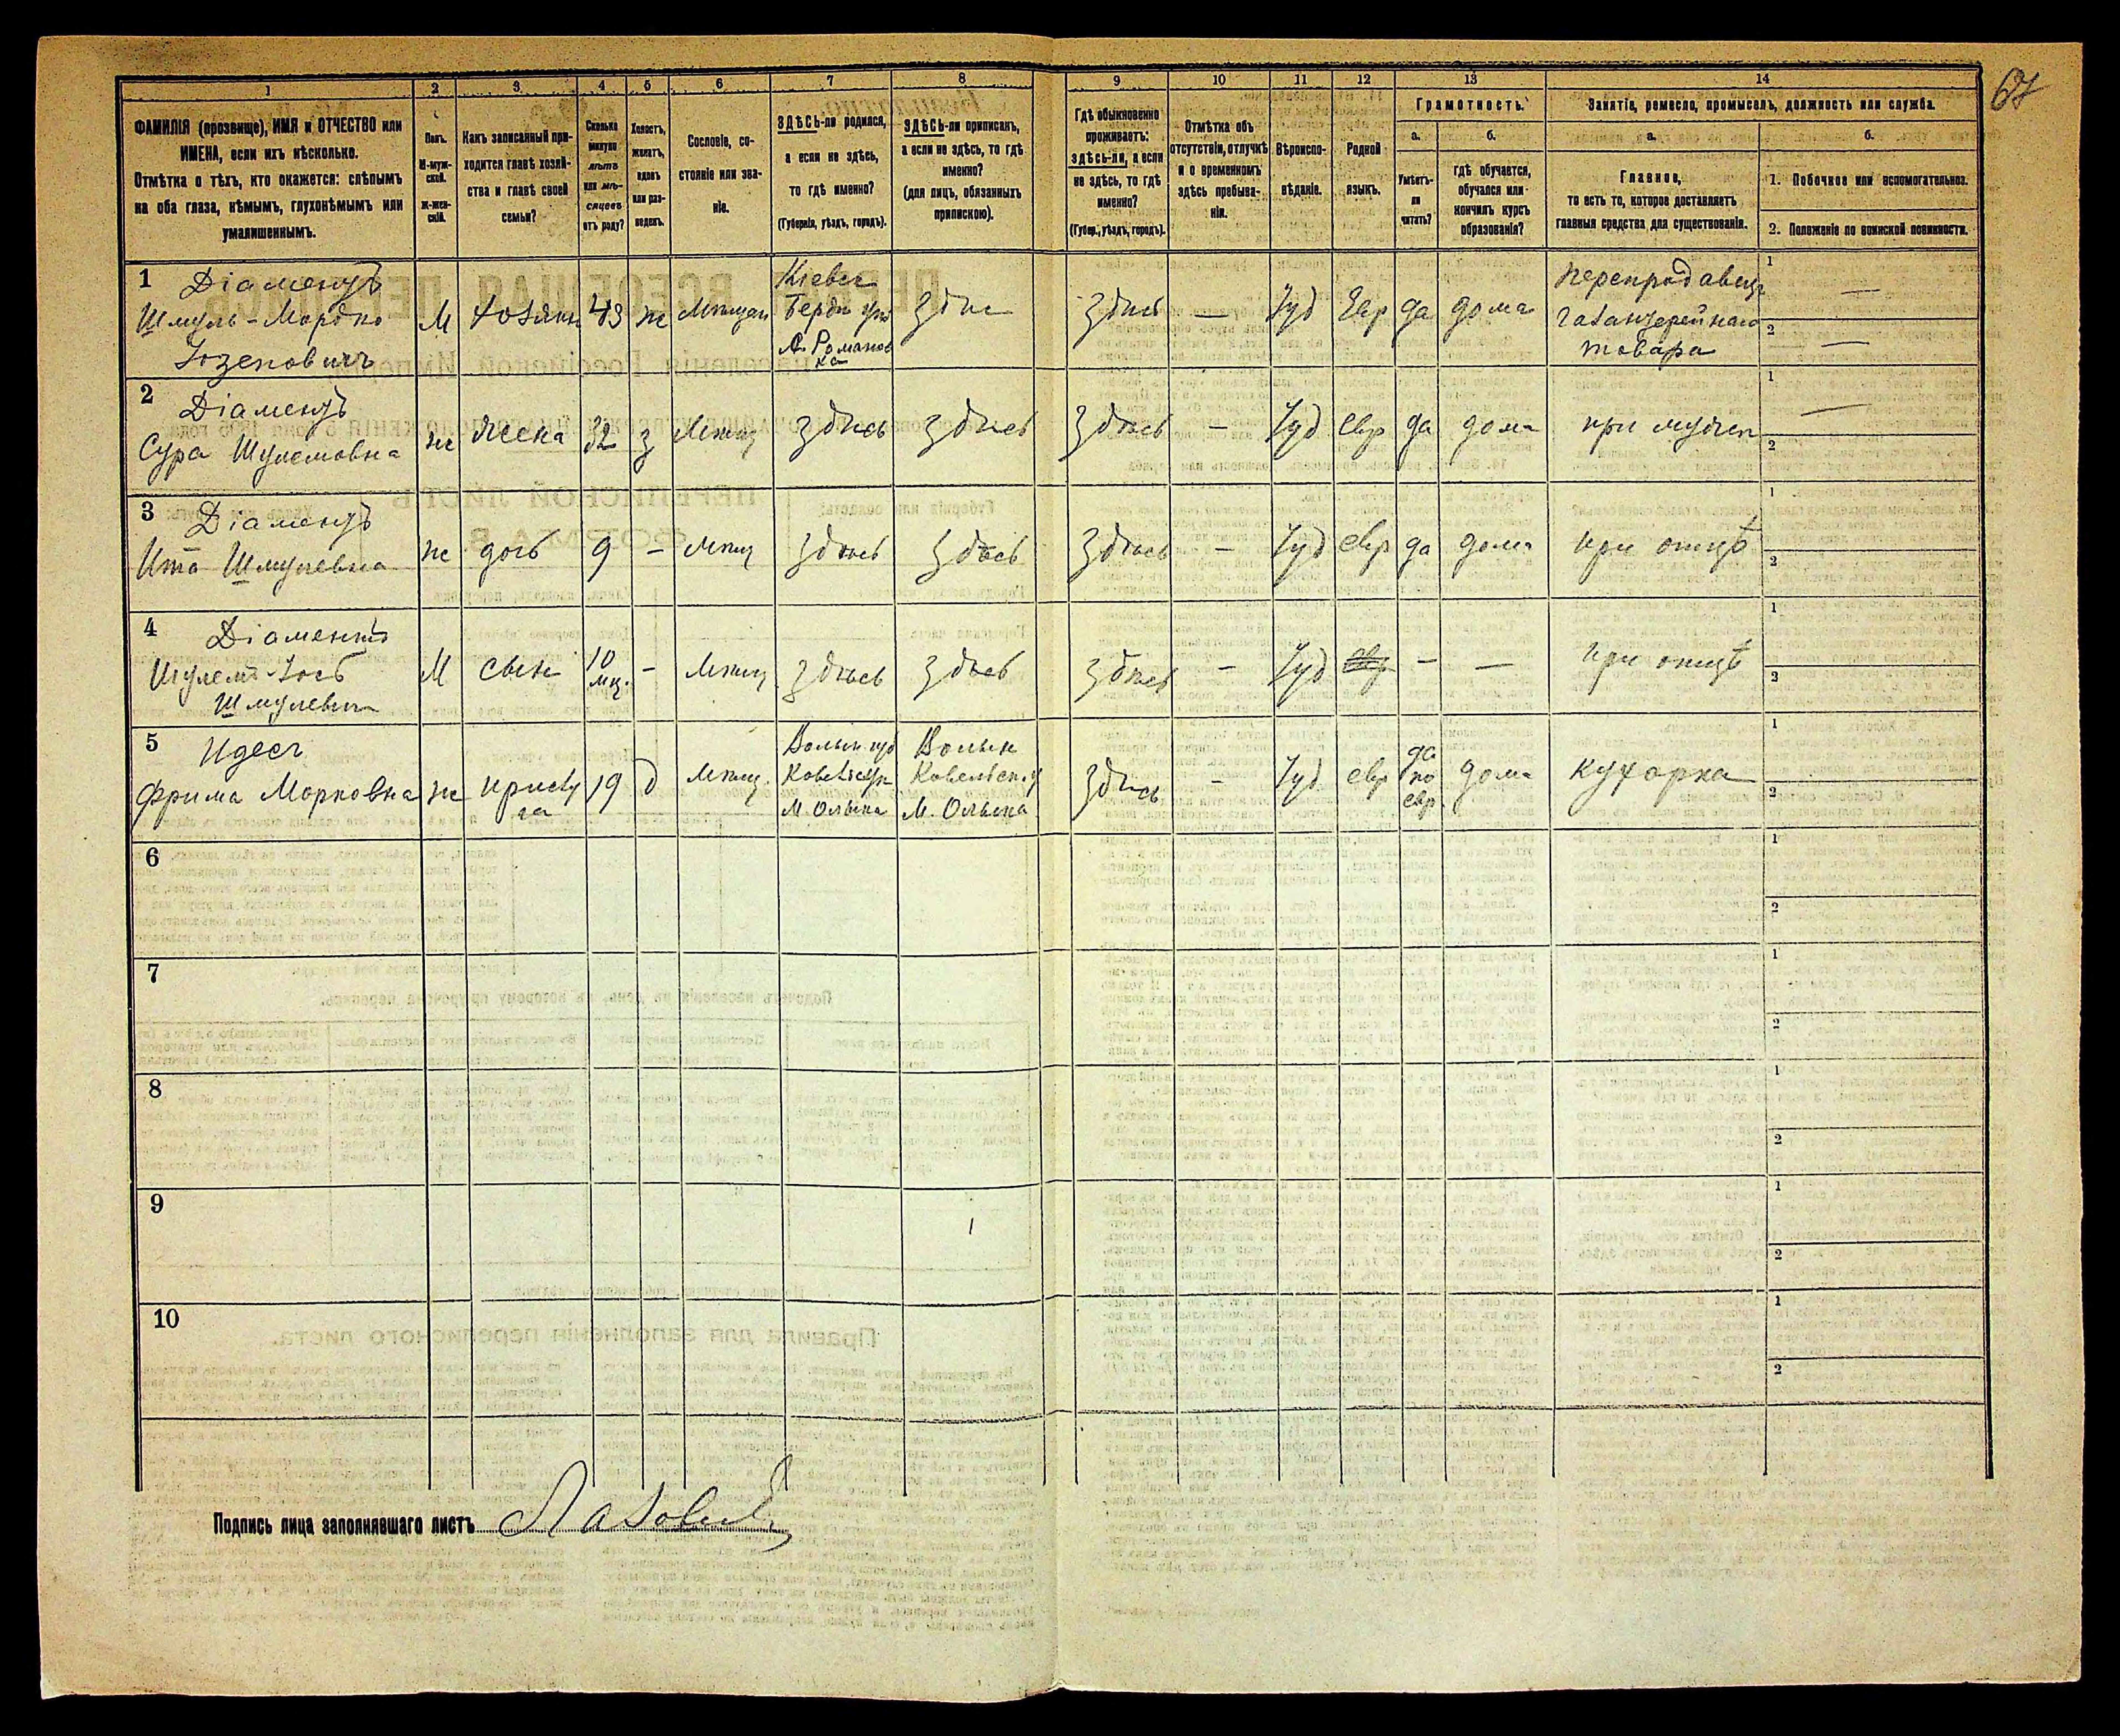 67
1 2 3 4 5 6 7 8 9 10 11 12 13 14
ФАМИЛІЯ (прозвище), ИМЯ и ОТЧЕСТВО или
ИМЕНА, если ихъ нѣсколько.
Отмѣтка о тѣхъ, кто окажется: слѣпымъ
на оба глаза, нѣмымъ, глухонѣмымъ или
умалишеннымъ.
Полъ.
М-муж-
ской.
Ж-жен-
скій.
Какъ записанный при-
ходится главѣ хозяй-
ства и главѣ своей
семьи?
Сколько
минуло
лѣтъ
или мѣ-
сяцевъ
отъ роду?
Холостъ,
женатъ,
вдовъ
или раз-
веденъ.
Сословіе, со-
стояніе или зва-
ніе.
ЗДѢСЬ-ли родился,
а если не здѣсь,
то гдѣ именно?
(Губернія, уѣздъ, городъ).
ЗДѢСЬ-ли приписанъ,
а если не здѣсь, то гдѣ
именно?
(для лицъ, обязанныхъ
припискою).
Гдѣ обыкновенно
проживаетъ:
здѣсь-ли, а если
не здѣсь, то гдѣ
именно?
(Губер., уѣздъ, городъ).
Отмѣтка объ
отсутствіи, отлучкѣ
и о временномъ
здѣсь пребыва-
ніи.
Вѣроиспо-
вѣданіе.
Родной
языкъ.
Грамотность.
а.
Умѣетъ-
ли
читать?
б.
гдѣ обучается,
обучался или
кончилъ курсъ
образованія?
Занятіе, ремесло, промыселъ, должность или служба.
а.
Главное,
то есть то, которое доставляетъ
главныя средства для существованія.
б.
1. Побочное или вспомогательное.
2. Положеніе по воинской повинности.
1 Діаментъ
Шмуль-Мордко
Іозеповичъ
М хозяинъ 43 ж Мѣщан
Кіевск
Берди уѣз
Романов
ка
здѣс здѣсь — Іуд Евр да дома
перепродавецъ
галантерейнаго
товара
1 —
2 —
2 Діаментъ
Сура Шулемовна
ж жена 32 з Мѣщ здѣсь здѣсь здѣсь — Іуд евр да дома при мужѣ
1 —
2
3 Діаментъ
Ита Шмулевна
ж дочь 9 — Мѣщ здѣсь здѣсь здѣсь — Іуд евр да дома при отцѣ
1
2
4 Діаментъ
Шулемъ-Іось
Шмулевич
М сынъ 10
мц. — Мѣщ здѣсь здѣсь здѣсь — Іуд евр — — при отцѣ
1
2
5 Идесъ
Фрима Морковна
ж прислу
га
19 д Мѣщ.
Волын губ
Ковельск
М. Олыка
Волын
Ковельск. у
М. Олыка
здѣсь — Іуд евр
да
по
евр.
дома кухарка
1
2
6
1
2
7
1
2
8
1
2
9
1
2
10
1
2
Подпись лица заполнявшаго листъ